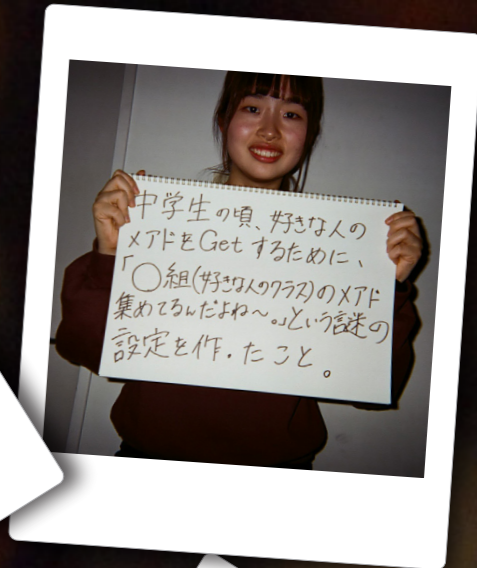 中学生の頃、好きな人の
メアドをGetするために、
「〇組(好きな人のクラス)のメアド
集めてるんだよね〜。」という謎の
設定を作った こと。